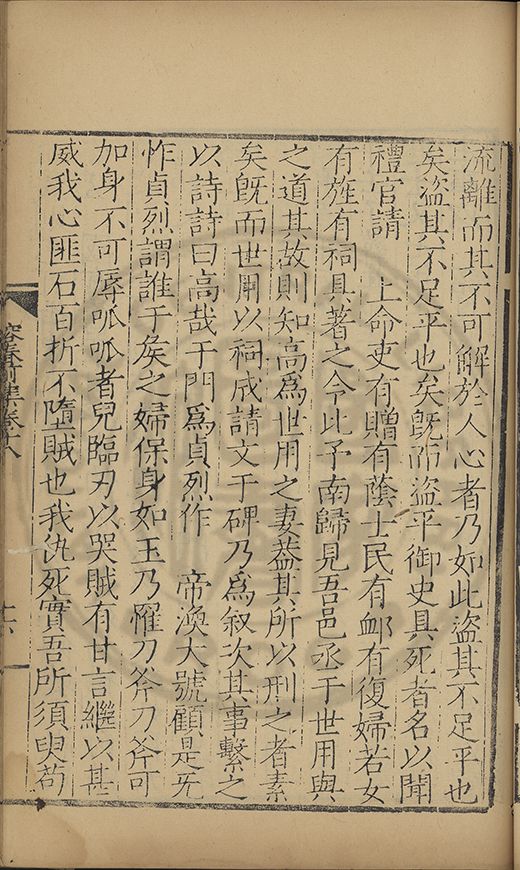 流離而其不可解於人心者乃如此盜其不足平也
矣盜其不足平也矣旣而盜平御史具死者名以聞
禮官請　上命吏有贈有蔭士民有䘏有復婦若女
有旌有祠具著之令此予南歸見吾邑丞于世用與
之道其故則知高爲世用之妻葢其所以刑之者素
矣旣而世用以祠成請文于碑乃爲叙次其事繫之
以詩詩曰高哉于門爲貞烈作　帝渙大號顧是旡
怍貞烈謂誰于矦之婦保身如玉乃罹刀斧刀斧可
加身不可辱呱呱者兒臨刃以哭賊有甘言繼以甚
威我心匪石百折不墮賊也我仇死實吾所須臾苟
容春堂 集卷十八
十六